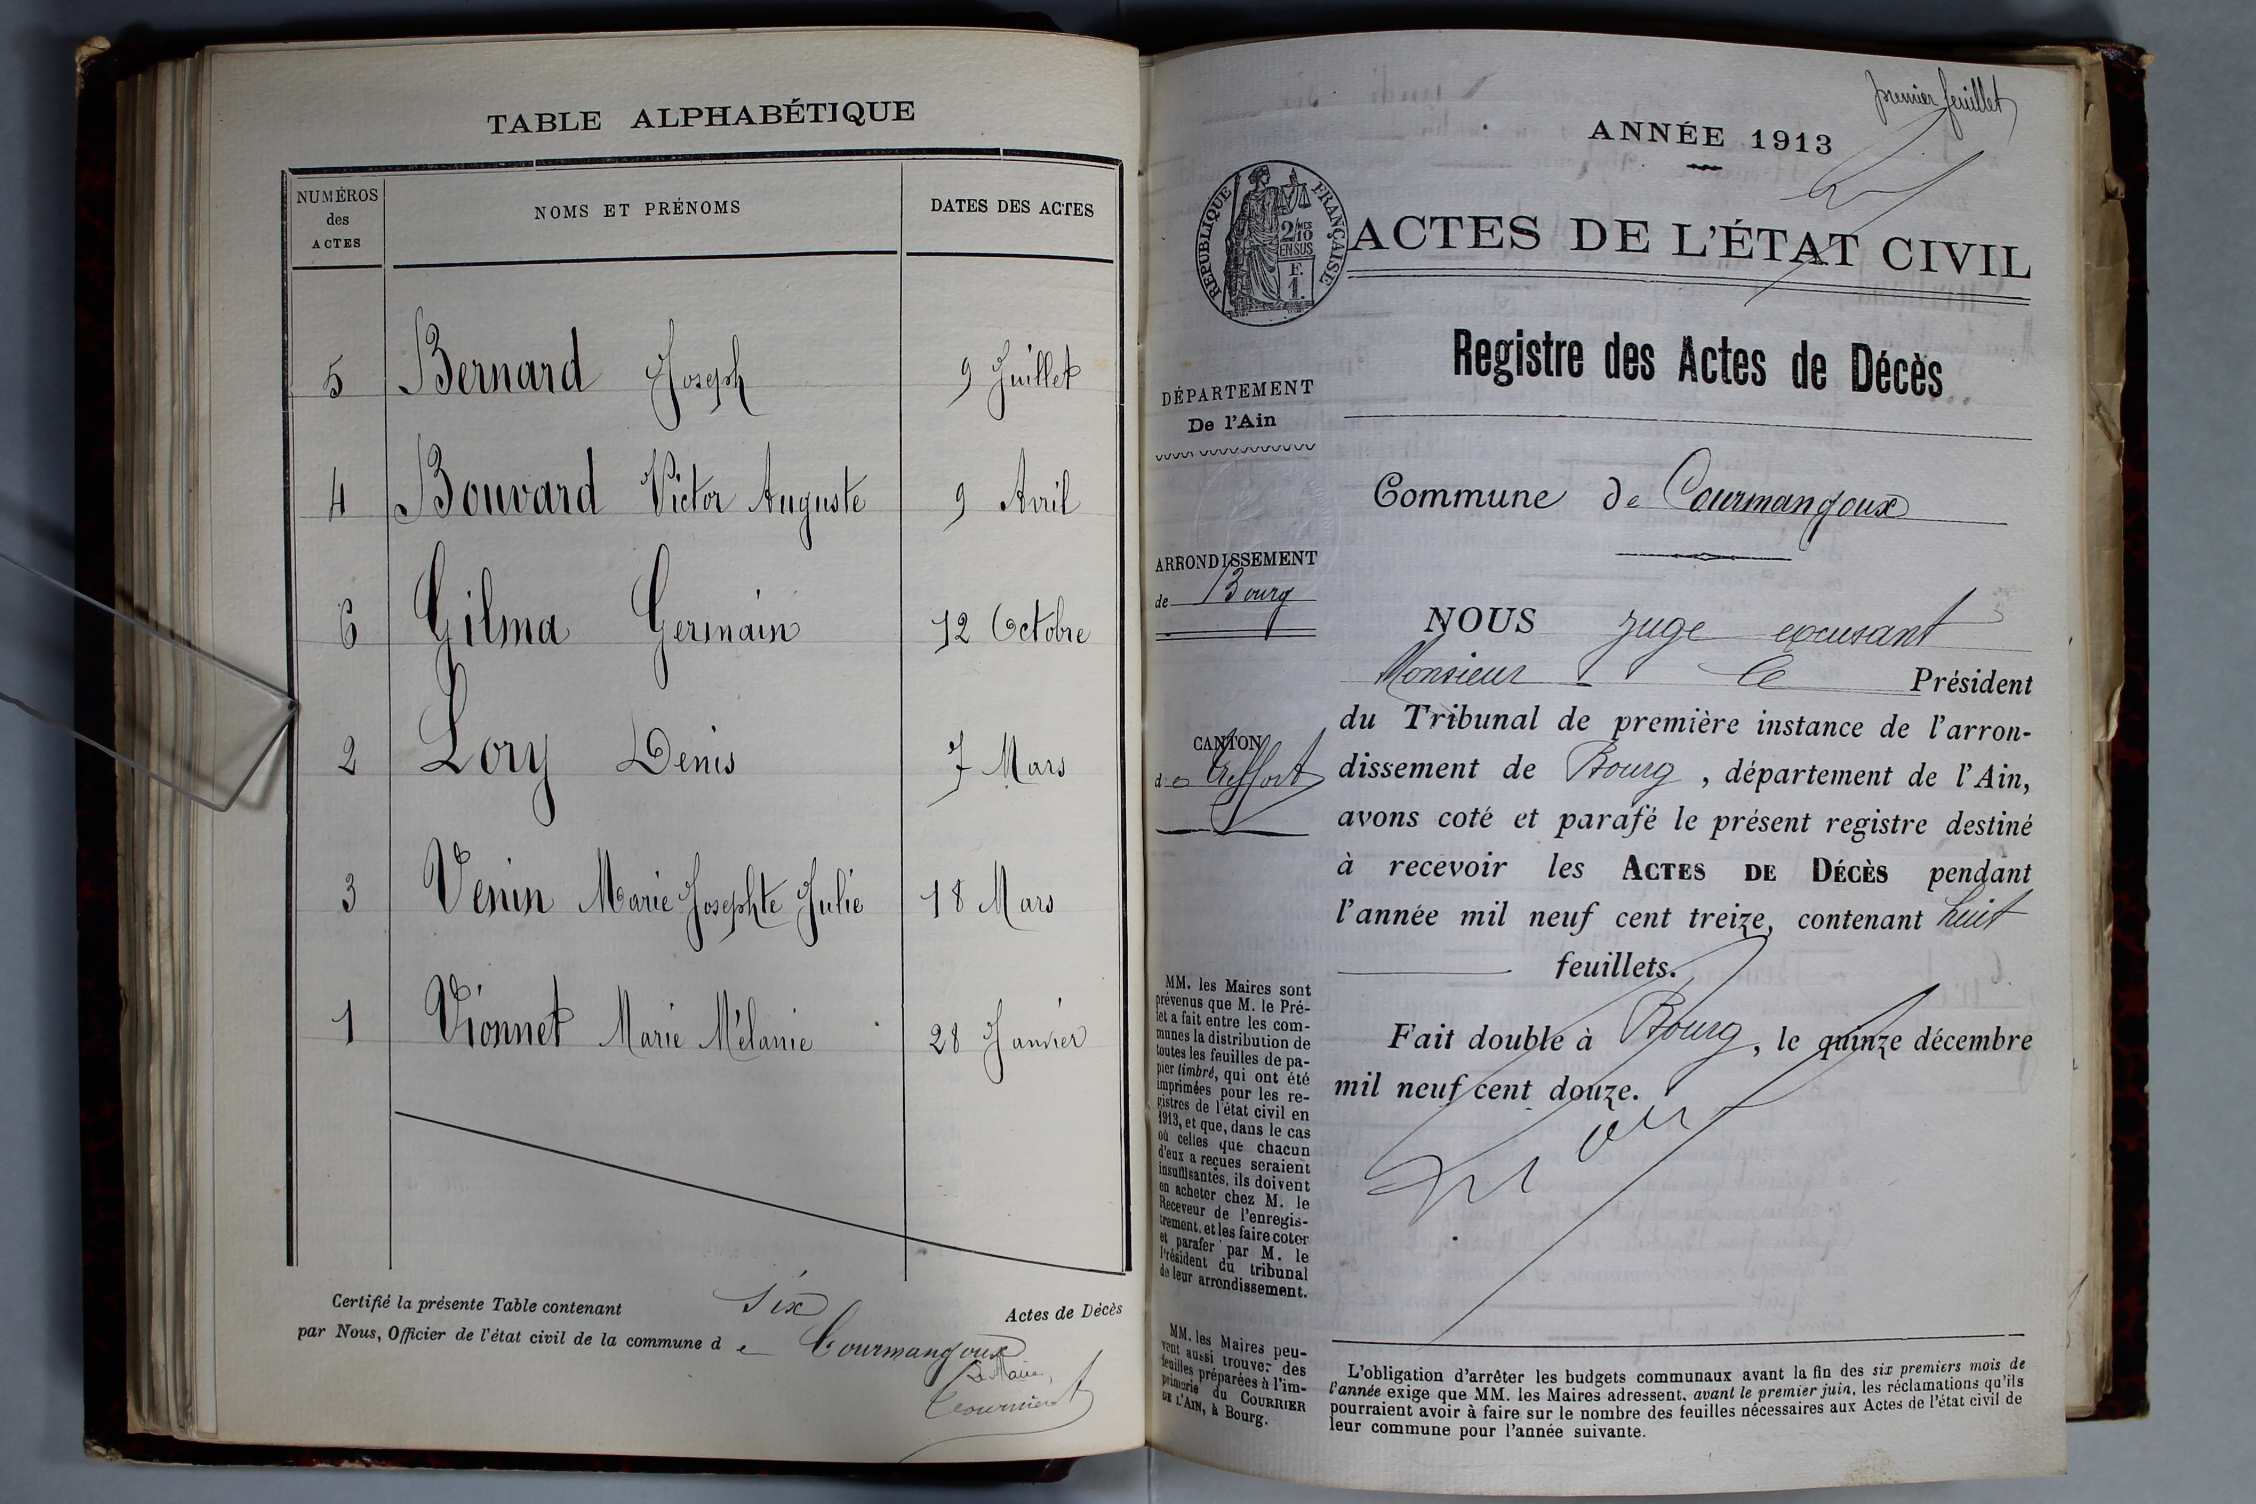 TABLE ALPHABÉTIQUE
NUMÉROS des ACTES
NOMS ET PRÉNOMS
DATES DES ACTES
5 Bernard Joseph 9 Juillet
4 Bouvard Victor Auguste 9 Avril
6 Gilma Germain 12 Octobre
2 Lory Denis 7 Mars
3 Venin Marie Josephte Julie 18 Mars
1 Vionnet Marie Mélanie 28 Janvier
Certifié la présente Table contenant six Actes de Décès
par Nous, Officier de l'état civil de la commune de Courmangoux
Le Maire,
premier feuillet
ANNÉE 1913
RÉPUBLIQUE FRANÇAISE
2/10 MES
EN SUS
F.
1.
ACTES DE L'ÉTAT CIVIL
Registre des Actes de Décès
DÉPARTEMENT
De l'Ain
Commune de Courmangoux
ARRONDISSEMENT
de Bourg
CANTON
de Treffort
NOUS juge excusant
Monsieur le Président
du Tribunal de première instance de l'arron-
dissement de Bourg, département de l'Ain,
avons coté et parafé le présent registre destiné
à recevoir les ACTES DE DÉCÈS pendant
l'année mil neuf cent treize, contenant huit
feuillets.
Fait double à Bourg, le quinze décembre
mil neuf cent douze.
MM. les Maires sont
prévenus que M. le Pré-
fet a fait entre les com-
munes la distribution de
toutes les feuilles de pa-
pier timbré, qui ont été
imprimées pour les re-
gistres de l'état civil en
1913, et que, dans le cas
où celles que chacun
d'eux a reçues seraient
insuffisantes, ils doivent
en acheter chez M. le
Receveur de l'enregis-
trement, et les faire coter
et parafer par M. le
Président du tribunal
de leur arrondissement.
MM. les Maires peu-
vent aussi trouver des
feuilles préparées à l'im-
primerie du COURRIER
DE L'AIN, à Bourg.
L'obligation d'arrêter les budgets communaux avant la fin des six premiers mois de
l'année exige que MM. les Maires adressent, avant le premier juin, les réclamations qu'ils
pourraient avoir à faire sur le nombre des feuilles nécessaires aux Actes de l'état civil de
leur commune pour l'année suivante.